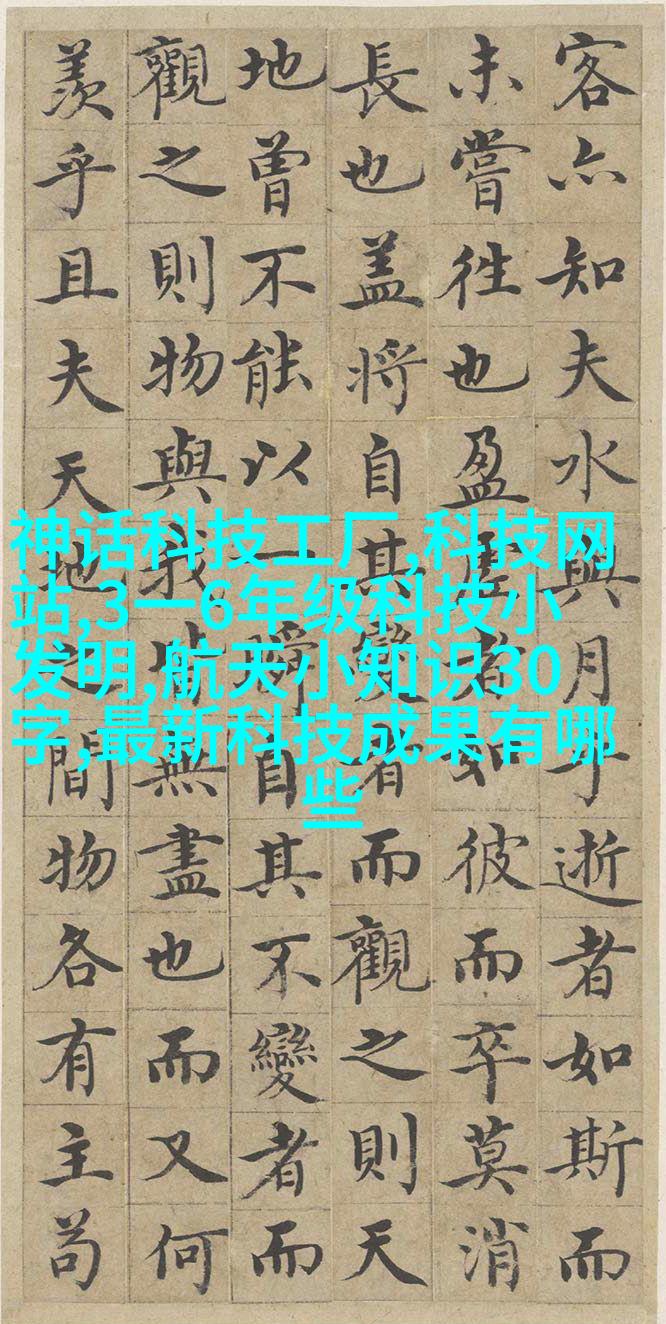 客亦知夫水與月乎逝者如斯而
未嘗往也盈虛者如彼而卒莫消
長也蓋將自其變者而觀之則天
地曾不能以一瞬自其不變者而
觀之則物與我皆無盡也而又何
羨乎且夫天地之間物各有主苟
神话科技工厂,科技网
站,3一6年级科技小
发明,航天小知识30
字,最新科技成果有哪
些